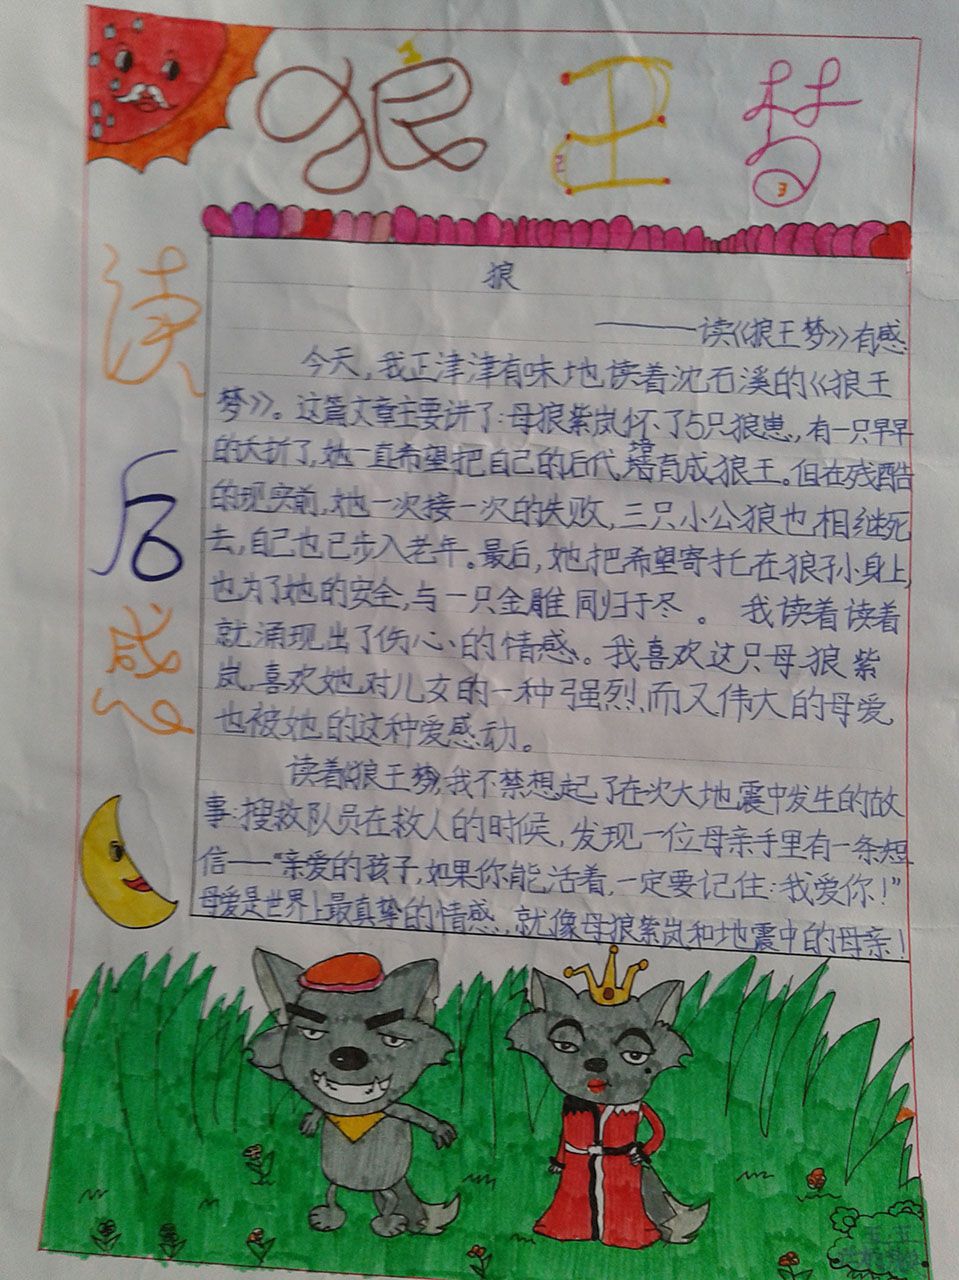 狼王梦
1
2
3
读后感
狼
———读《狼王梦》有感
今天,我正津津有味地读着沈石溪的《狼王
梦》。这篇文章主要讲了:母狼紫岚怀了5只狼崽,有一只早早
的夭折了,她一直希望把自己的后代,培育成狼王。但在残酷
的现实前,她一次接一次的失败,三只小公狼也相继死
去,自己也已步入老年。最后,她把希望寄托在狼孙身上,
也为了她的安全,与一只金雕同归于尽。我读着读着
就涌现出了伤心的情感。我喜欢这只母狼紫
岚,喜欢她对儿女的一种强烈、而又伟大的母爱
也被她的这种爱感动。
读着《狼王梦》,我不禁想起了在次大地震中发生的故
事:搜救队员在救人的时候,发现一位母亲手里有一条短
信——"亲爱的孩子,如果你能活着,一定要记住:我爱你!"
母爱是世界上最真挚的情感,就像母狼紫岚和地震中的母亲!